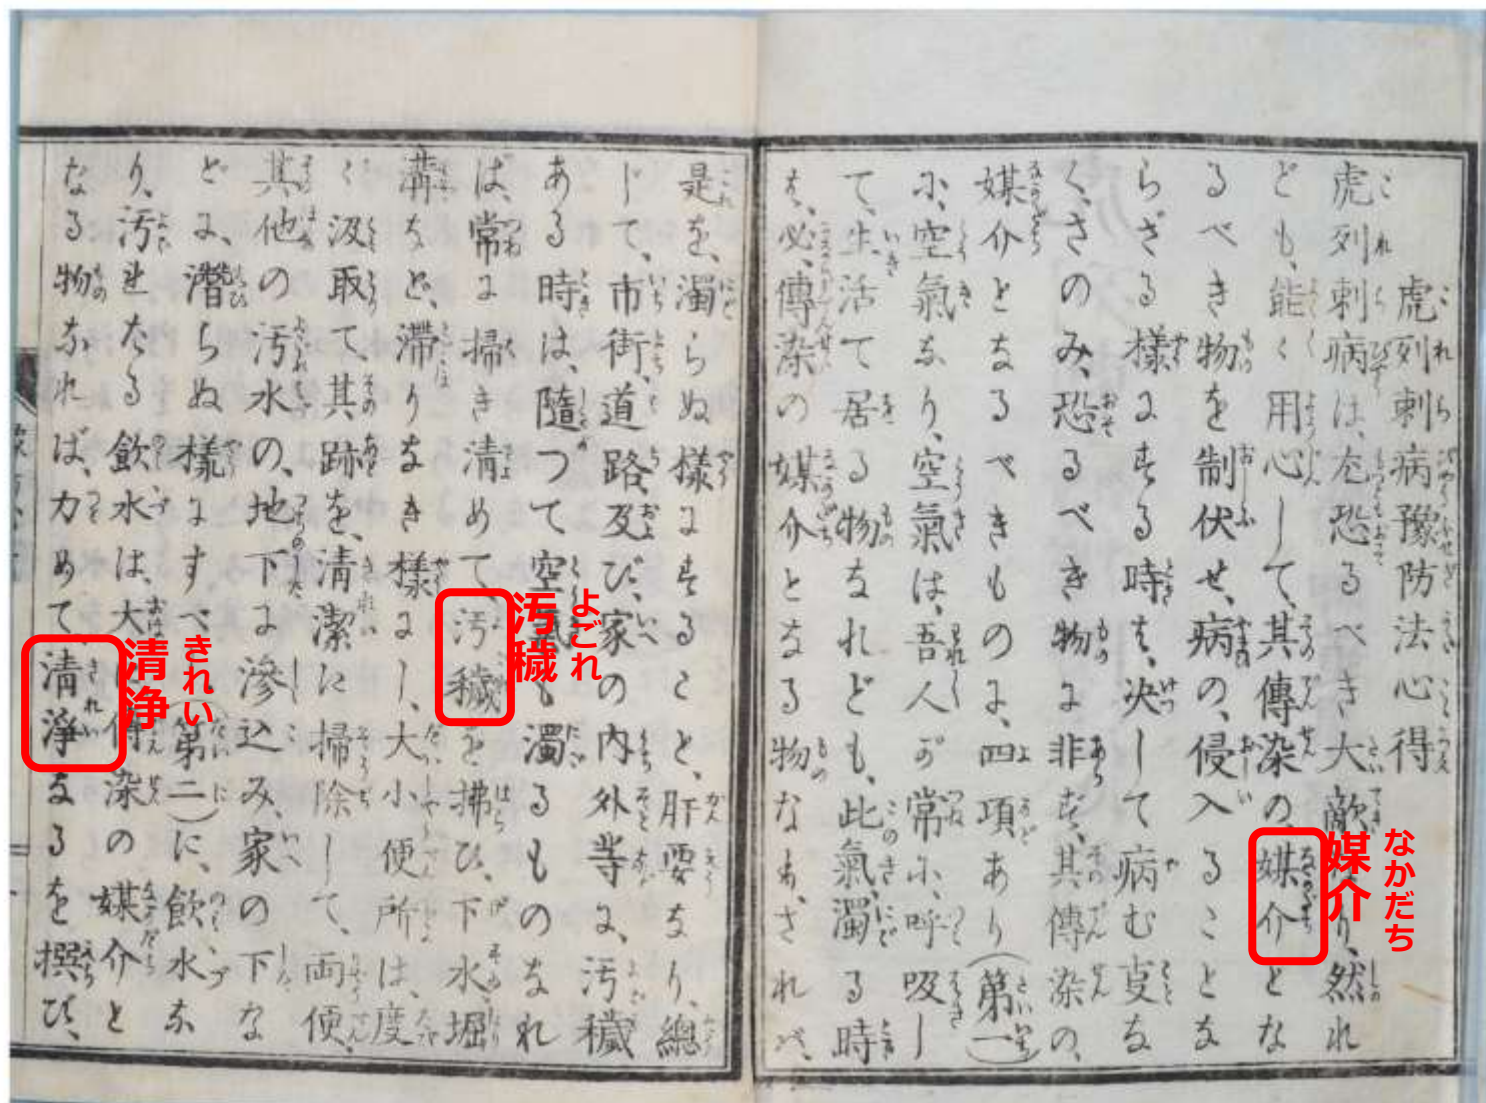 虎列刺病豫防法心得
虎列刺病は、尤恐るべき大敵なり、然れ
ども、能く用心して、其傳染の、媒介とな
るべき物を制伏せ、病の、侵入ることな
らざる様にする時は、决して病む叓な
く、さのみ、恐るべき物に非ず、其傳染の、
媒介となるべきものに、四項あり(第一)
に、空氣なり、空氣は、吾人が常に、呼吸し
て、生活て居る物なれども、此氣、濁る時
は、必、傳染の媒介となる物なり、されば、
是を、濁らぬ様にすること、肝要なり、總
じて、市街、道路、及び、家の内外等に、汚穢
ある時は、隨つて空氣も濁るものなれ
ば、常に掃き清めて、汚穢を拂ひ、下水、堀
溝など、滞りなき様にし、大小便所は、度
〻汲取て、其跡を、清潔に掃除して、両便、
其他の汚水の、地下に滲込み、家の下な
どに、潜らぬ様にすべし(第二)に、飲水な
り、汚れたる飲水は、大に傳染の媒介と
なる物なれば、力めて、清淨なるを撰び、
なかだち
媒介
よごれ
汚穢
きれい
清浄